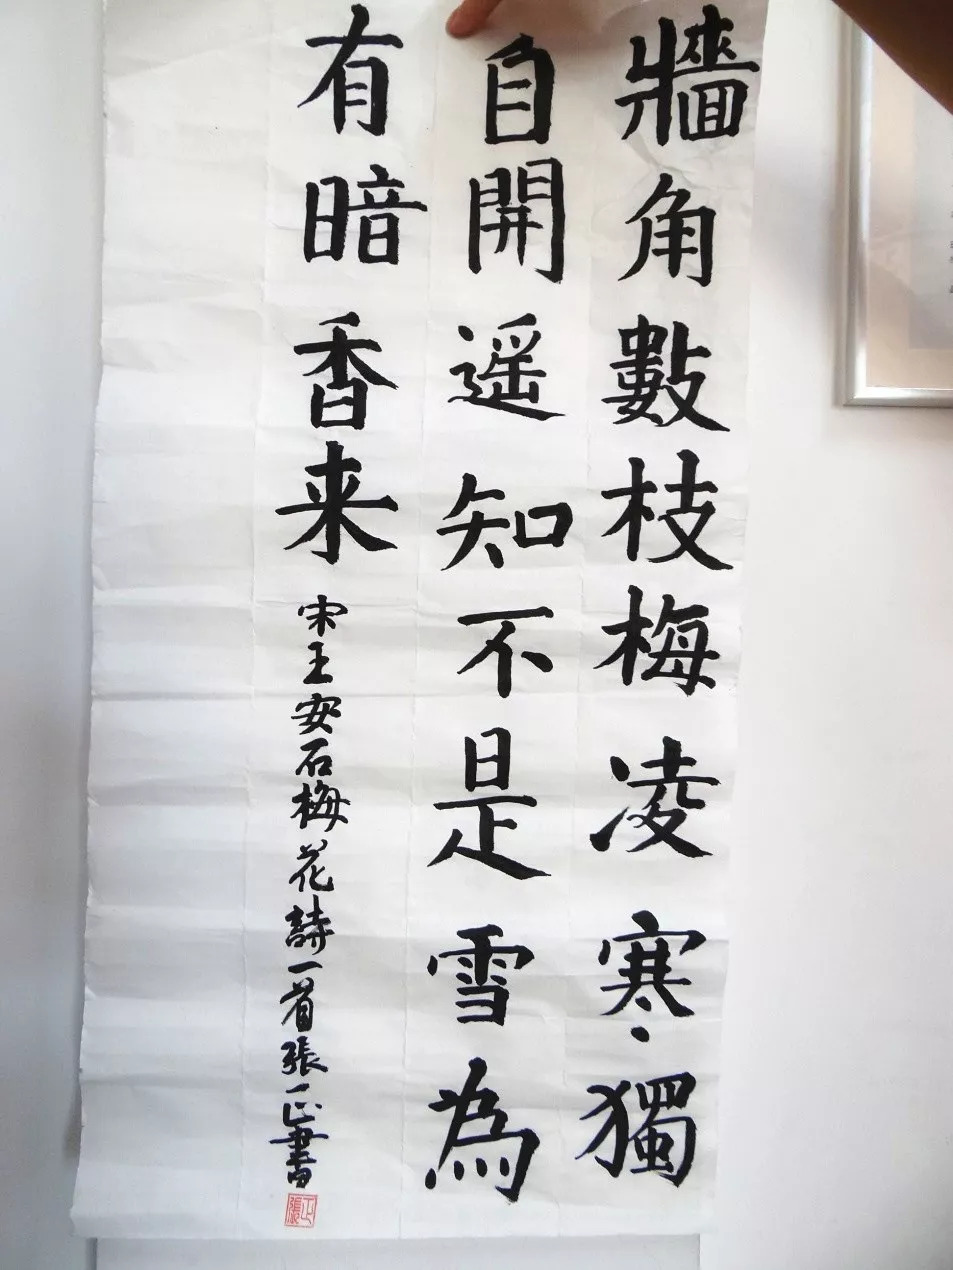 牆角數枝梅凌寒獨
自開遥知不是雪為
有暗香来
宋王安石梅花詩一首張一正書